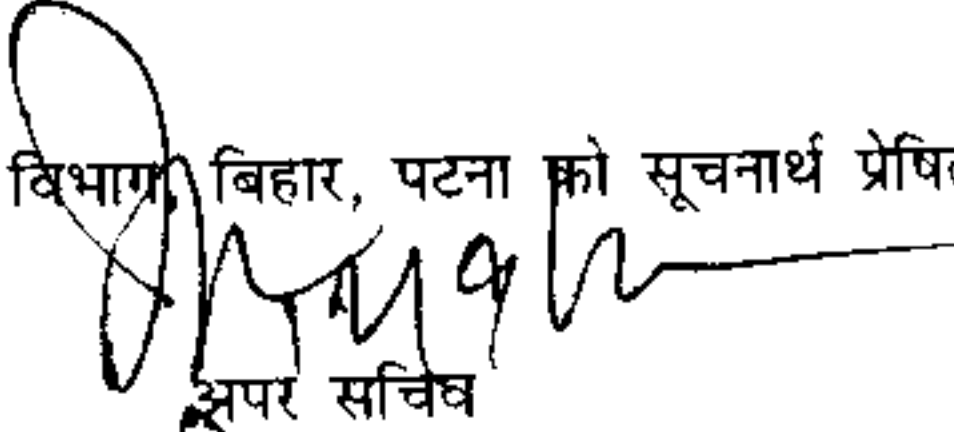 विभाग, बिहार, पटना को सूचनार्थ प्रेषित
अपर सचिव